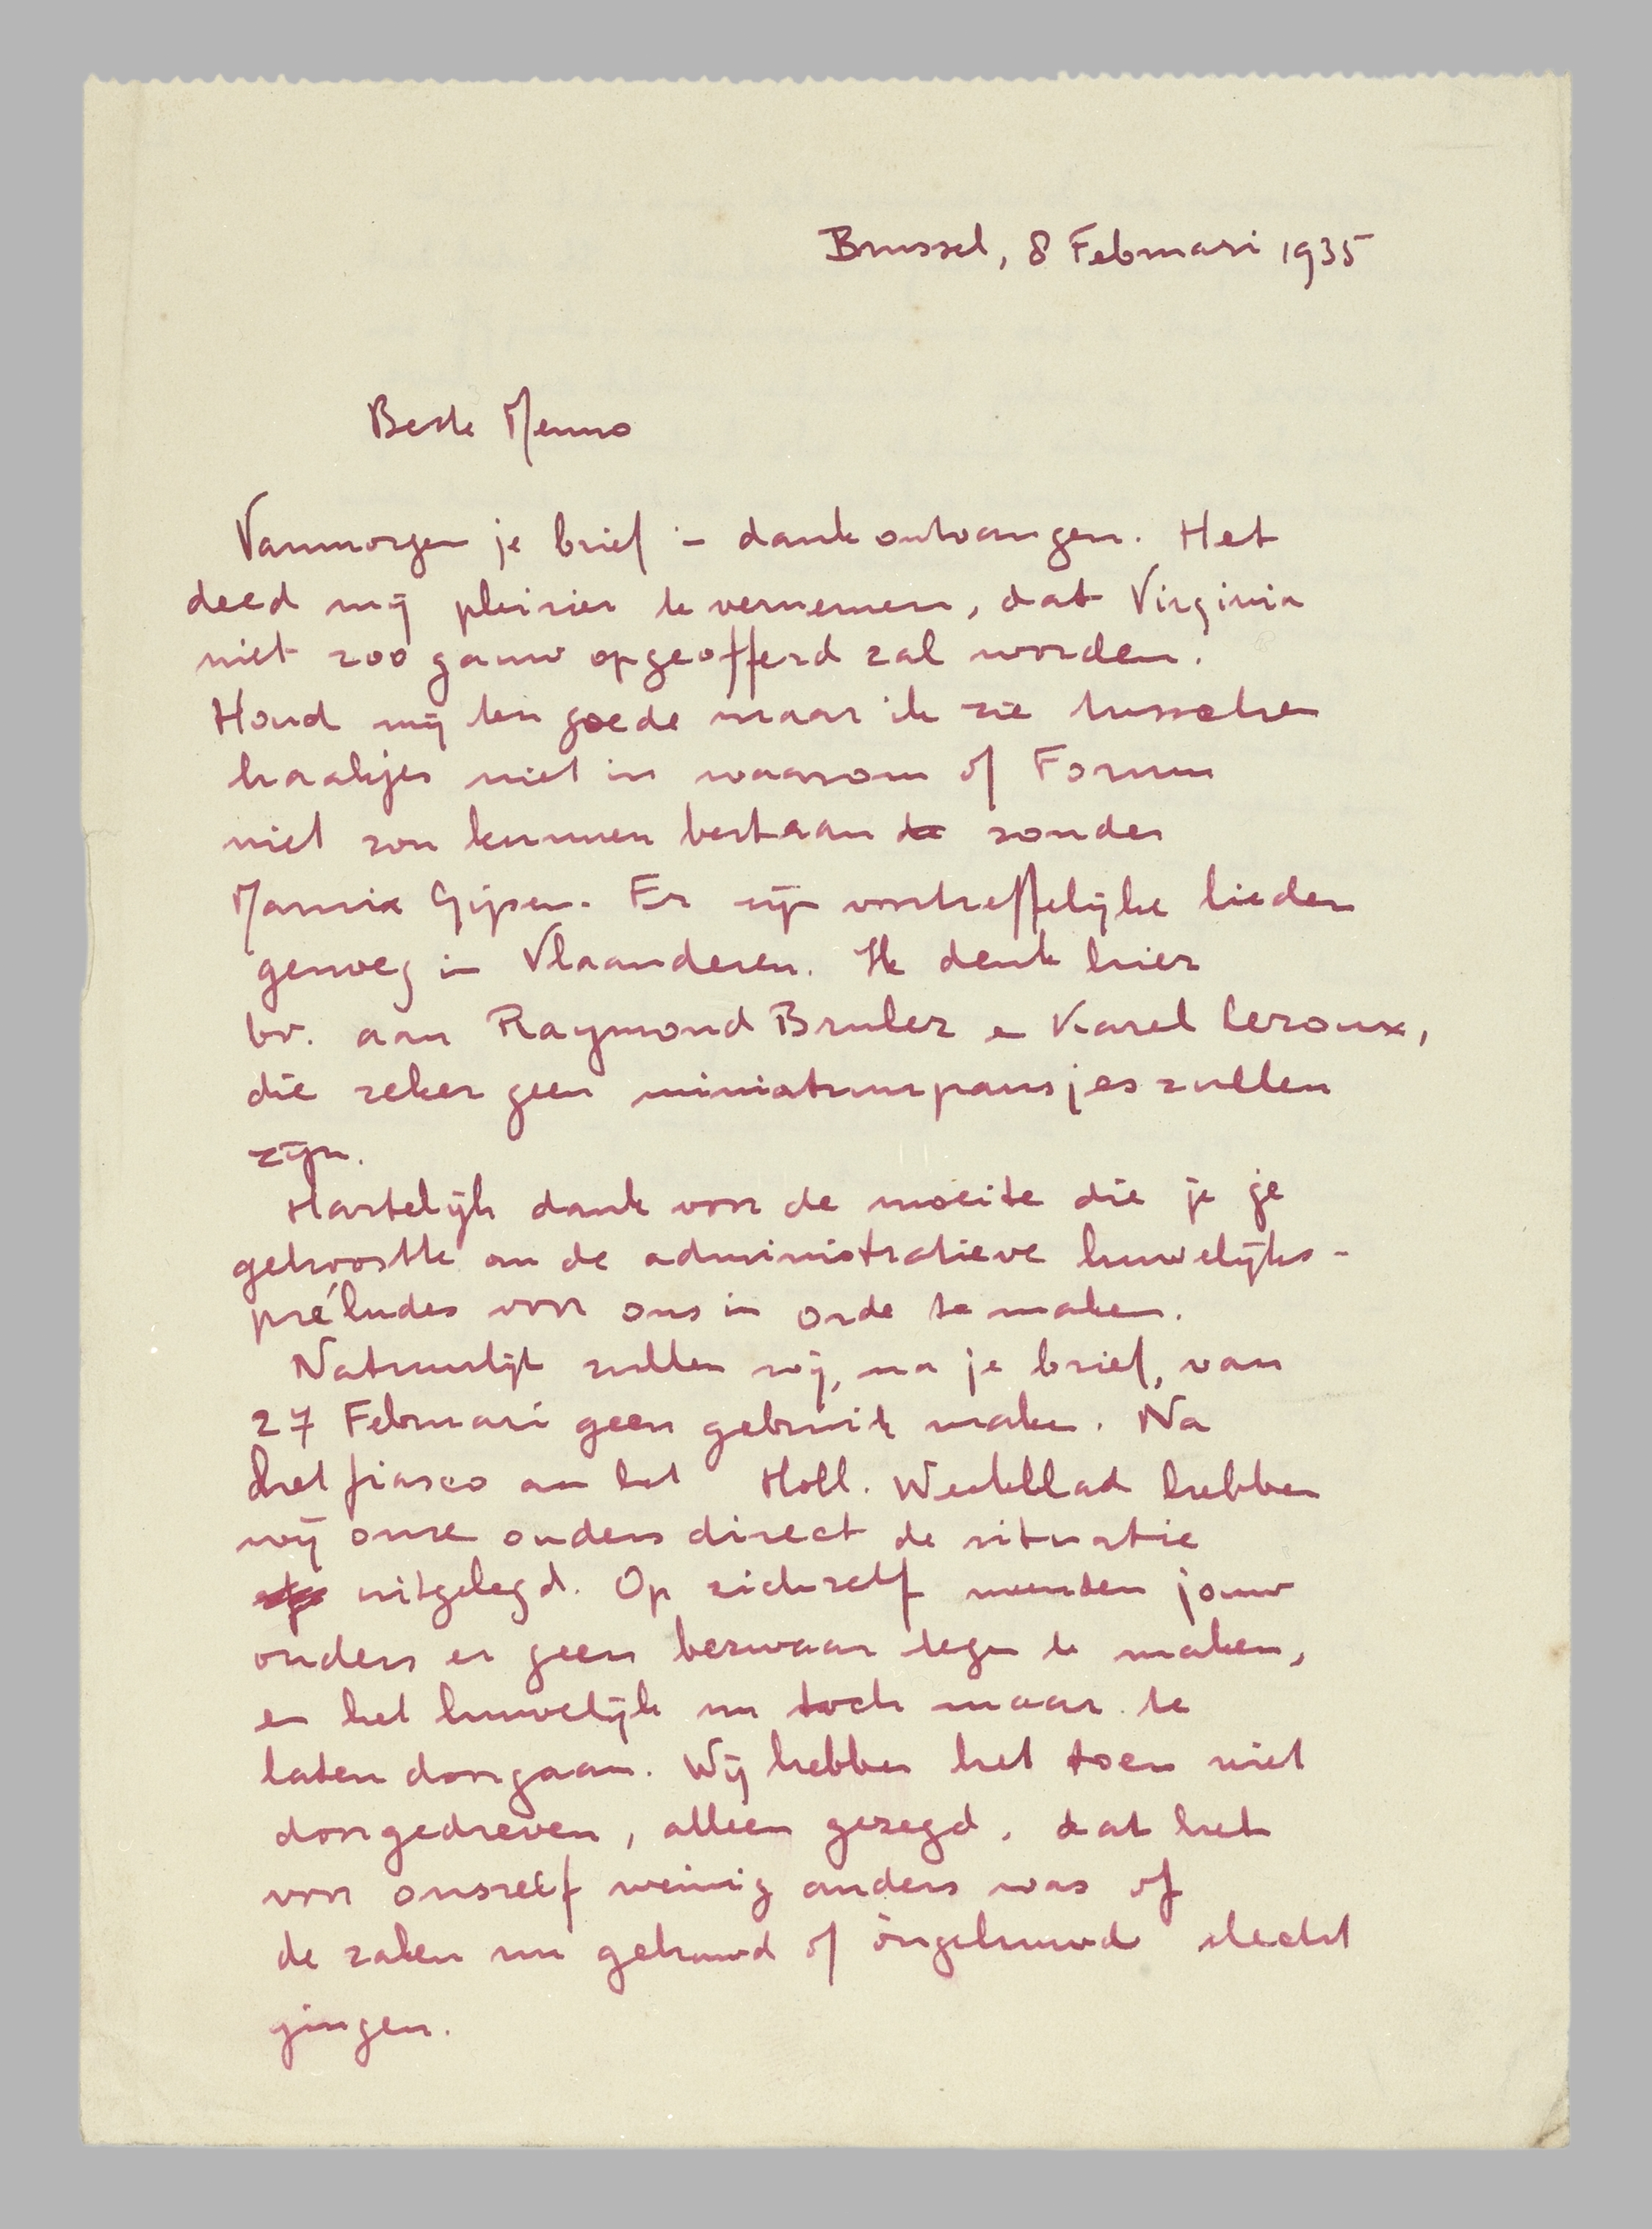 Brussel, 8 Februari 1935
Beste Menno
Vanmorgen je brief in dank ontvangen. Het
deed mij pleizier te vernemen, dat Virginia
niet zoo gauw opgeofferd zal worden.
Houd mij ten goede maar ik zie tusschen
haakjes niet in waarom of Forum
niet zou kunnen bestaan zonder
Marnix Gijsen. Er zijn voortreffelijke lieden
genoeg in Vlaanderen. Ik denk hier
bv. aan Raymond Brulez en Karel Leroux,
die zeker geen miniatuurpausjes zullen
zijn.
Hartelijk dank voor de moeite die je je
getroostte om de administratieve huwelijks-
préludes voor ons in orde te maken.
Natuurlijk zullen wij, na je brief, van
27 Februari geen gebruik maken. Na
het fiasco aan het Holl. Weekblad hebben
wij onze ouders direct de situatie
uitgelegd. Op zichzelf meenden jouw
ouders er geen bezwaar tegen te maken,
en het huwelijk nu toch maar te
laten doorgaan. Wij hebben het toen niet
doorgedreven, alleen gezegd, dat het
voor onszelf weinig anders was of
de zaken nu gehuwd of òngehuwd slecht
gingen.